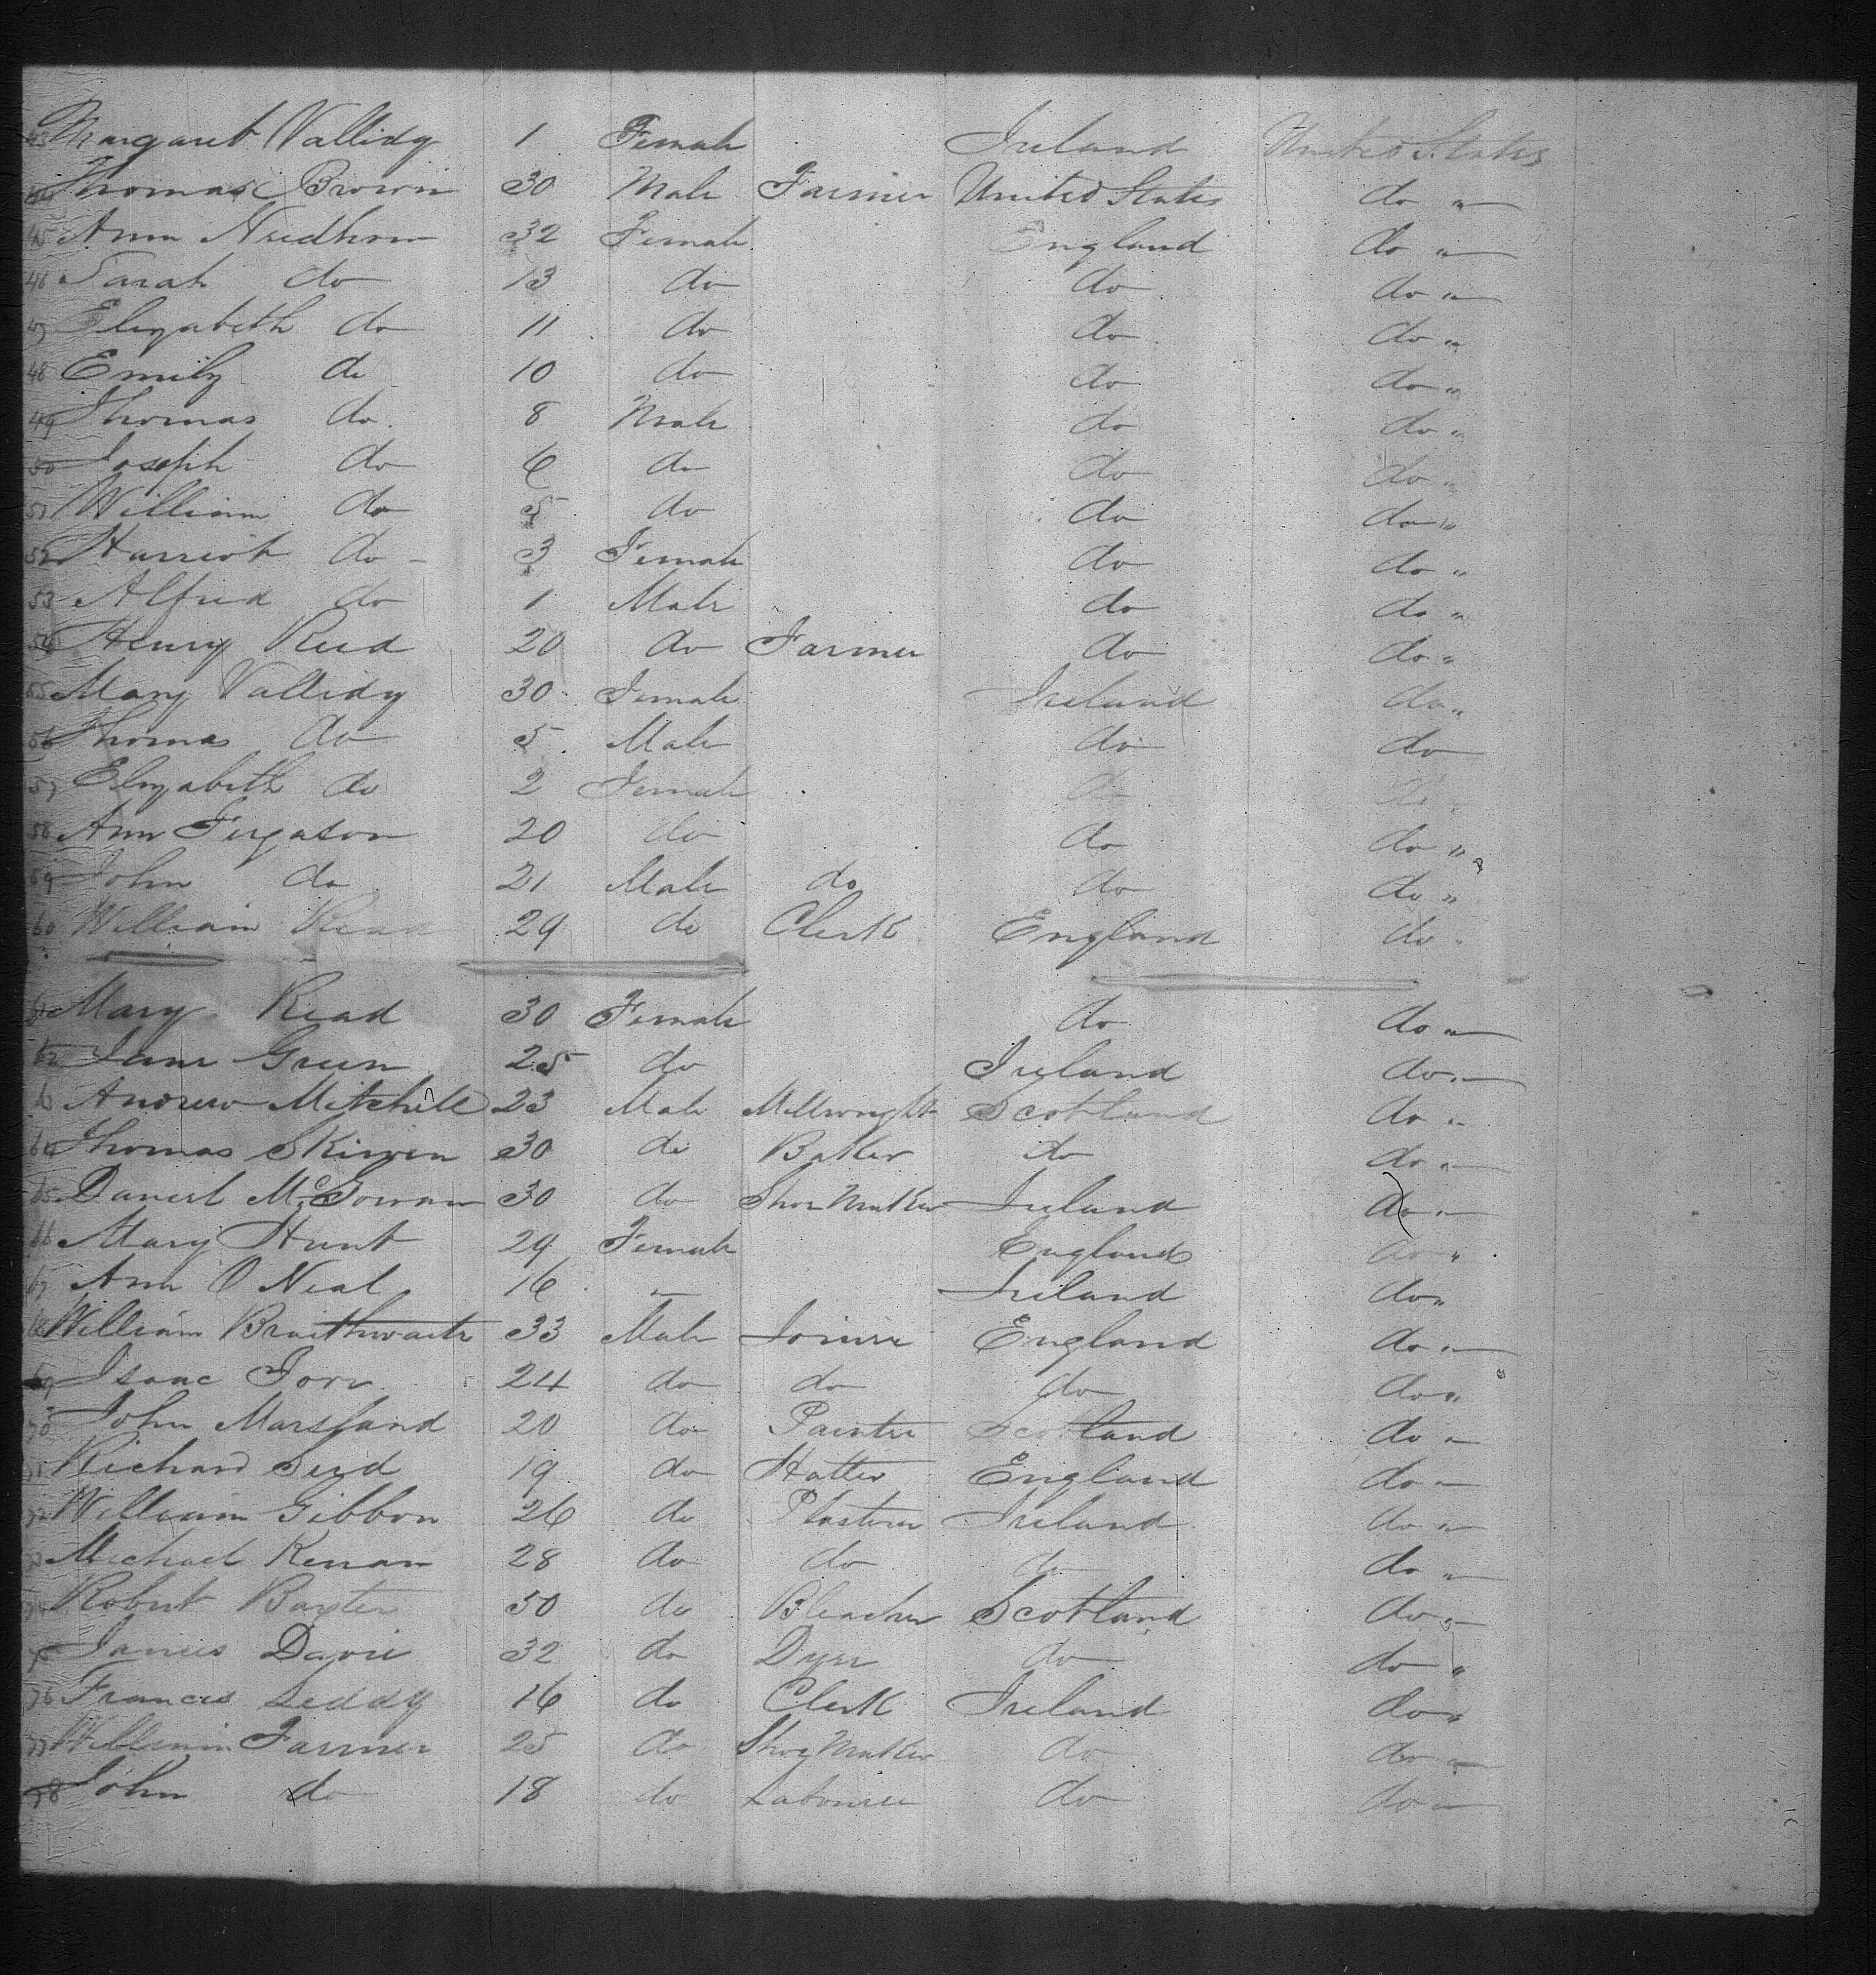 43 Margaret Vallidy 1 Female Ireland United States
44 Thomas Brown 30 Male Farmer United States do "
45 Ann Needham 32 Female England do "
46 Sarah do 13 do do do "
47 Elizabeth do 11 do do do "
48 Emily do 10 do do do "
49 Thomas do 8 Male do do "
50 Joseph do 6 do do do "
51 William do 5 do do do "
52 Harriot do 3 Female do do "
53 Alfred do 1 Male do do "
54 Henry Reed 20 do Farmer do do "
55 Mary Vallidy 30 Female Ireland do "
56 Thomas do 5 Male do do
57 Elizabeth do 2 Female do do "
58 Ann Fergason 20 do do do "
59 John do 21 Male do do do "
60 William Read 29 do Clerk England do "
61 Mary Read 30 Female do do "
62 Jane Green 25 do Ireland do "
63 Andrew Mitchell 23 Male Millwright Scotland do "
64 Thomas Skirven 30 do Baker do do "
65 Daniel McGowan 30 do Shoe Maker Ireland do "
66 Mary Hunt 29 Female England do "
67 Ann O Neal 16 — Ireland do "
68 William Braithwaite 33 Male Joiner England do "
69 Isaac 24 do do do do "
70 John Marsland 20 do Painter Scotland do "
71 Richard 19 do Hatter England do "
72 William Gibbon 26 do Plasterer Ireland do "
73 Michael Kenan 28 do do do do "
74 Robert Baxter 50 do Bleacher Scotland do "
75 James Davie 32 do Dyer do do "
76 Francis Leddy 16 do Clerk Ireland do "
77 William Farmer 25 do Shoe Maker do do "
78 John do 18 do Labourer do do "